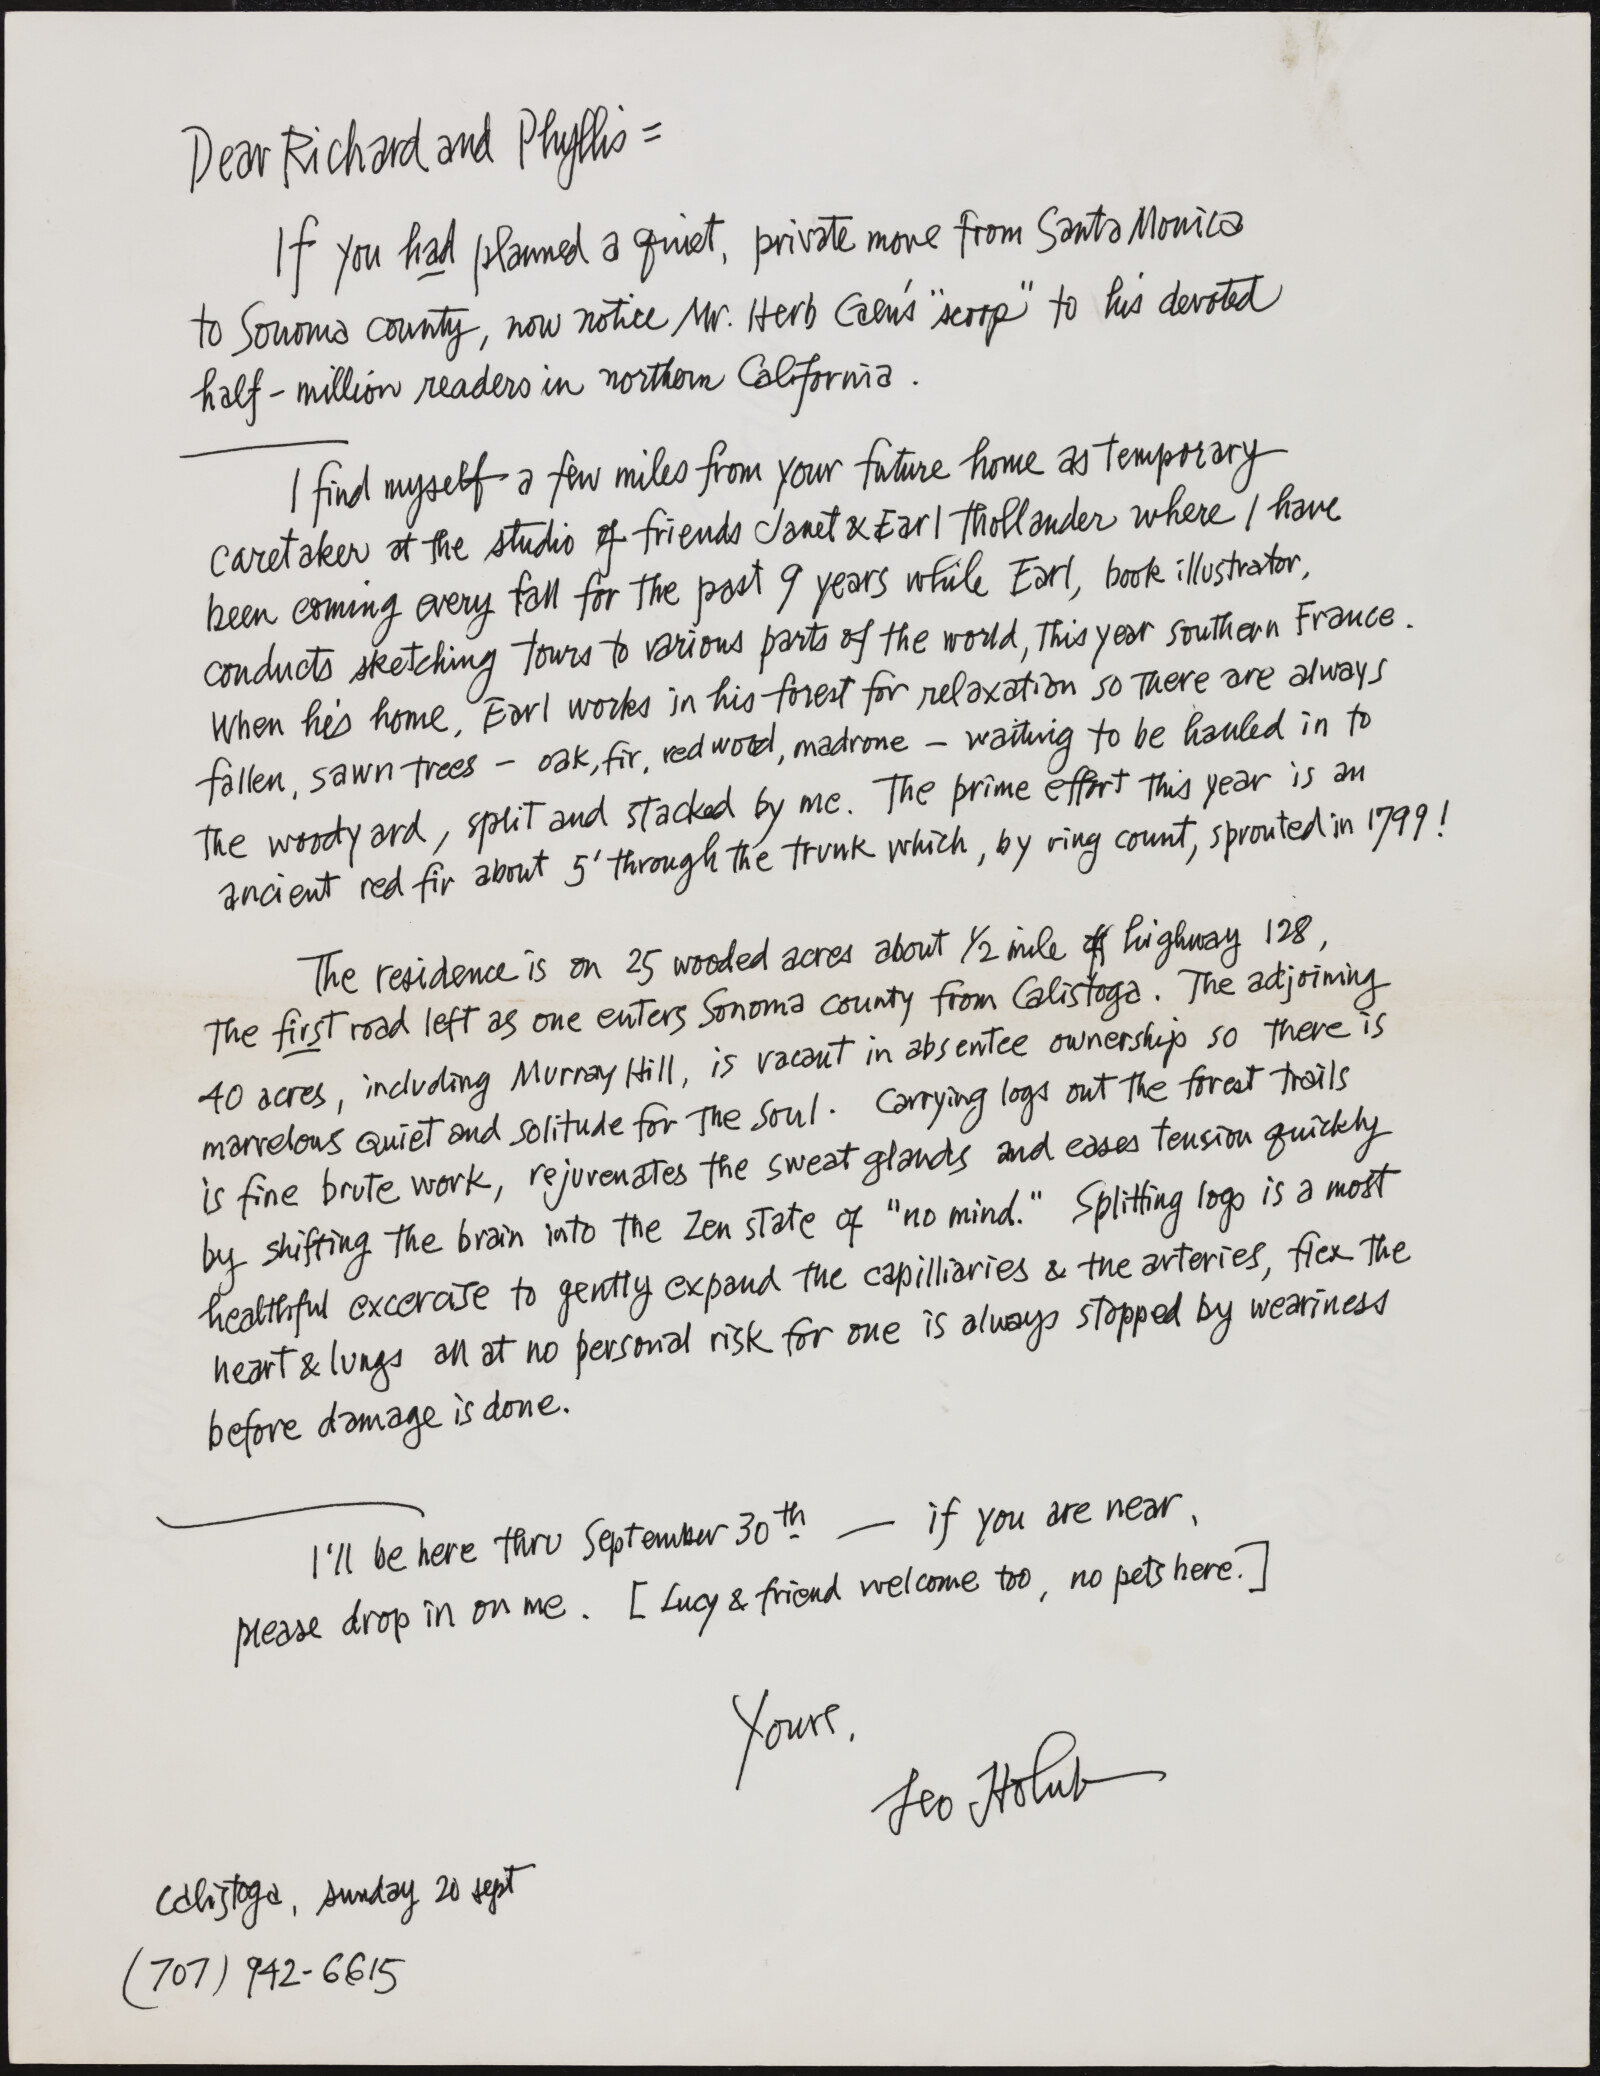 Dear Richard and Phyllis =
If you had planned a quiet, private move from Santa Monica
to Sonoma county, now notice Mr. Herb Caen's "scoop" to his devoted
half-million readers in northern California.
I find myself a few miles from your future home as temporary
caretaker at the studio of friends Janet & Earl Thollander where I have
been coming every fall for the past 9 years while Earl, book illustrator,
conducts sketching tours to various parts of the world, this year southern France.
When he's home, Earl works in his forest for relaxation so there are always
fallen, sawn trees - oak, fir, redwood, madrone - waiting to be hauled in to
the woodyard, split and stacked by me. The prime effort this year is an
ancient red fir about 5' through the trunk which, by ring count, sprouted in 1799!
The residence is on 25 wooded acres about 1/2 mile off highway 128,
the first road left as one enters Sonoma county from Calistoga. The adjoining
40 acres, including Murray Hill, is vacant in absentee ownership so there is
marvelous quiet and solitude for the soul. Carrying logs out the forest trails
is fine brute work, rejuvenates the sweat glands and eases tension quickly
by shifting the brain into the Zen state of "no mind." Splitting logs is a most
healthful excercise to gently expand the capilliaries & the arteries, flex the
heart & lungs all at no personal risk for one is always stopped by weariness
before damage is done.
I'll be here thru September 30th — if you are near,
please drop in on me. [Lucy & friend welcome too, no pets here.]
Yours,
Leo Holub
Calistoga, sunday 20 sept
(707) 942-6615